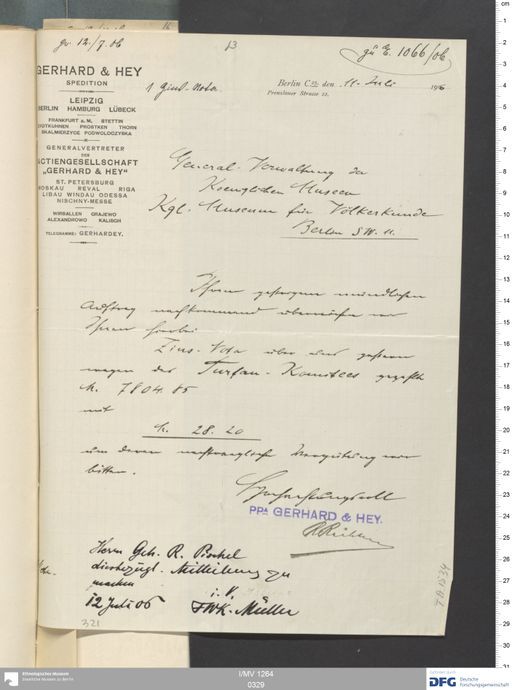 pr. 12./7. 06
13
zu E. 1066/06
GERHARD & HEY
SPEDITION
LEIPZIG
BERLIN HAMBURG LÜBECK
FRANKFURT a. M. STETTIN
EYDTKUHNEN PROSTKEN THORN
SKALMIERZYCE PODWOLOCZYSKA
GENERALVERTRETER
DER
ACTIENGESELLSCHAFT
„GERHARD & HEY"
ST. PETERSBURG
MOSKAU REVAL RIGA
LIBAU WINDAU ODESSA
NISCHNY-MESSE
WIRBALLEN GRAJEWO
ALEXANDROWO KALISCH
TELEGRAMME: GERHARDEY.
1 Zins-Nota
Berlin C. 25, den 11. Juli 1906
Prenzlauer Strasse
General-Verwaltung der
Koeniglichen Museen
Kgl. Museum für Völkerkunde
Berlin S.W. 11.
Ihrem gestrigen mündlichen
Auftrag nachkommend überreichen wir
Ihnen hierbei
Zins-Nota über uns gestern
wegen des Turfan-Komitees gezahlte
M. 7804.85
mit
M. 28.20
um deren nachträgliche Vergütung wir
bitten.
Hochachtungsvoll
PPA GERHARD & HEY.
Herrn Geh. R. Pischel
diesbezügl. Mitteilung zu
machen
12 Juli 06
i. V.
FWK. Müller
321
TA 1534
I/MV 1264
0329
Ethnologisches Museum
Staatliche Museen zu Berlin
DFG Deutsche
Forschungsgemeinschaft